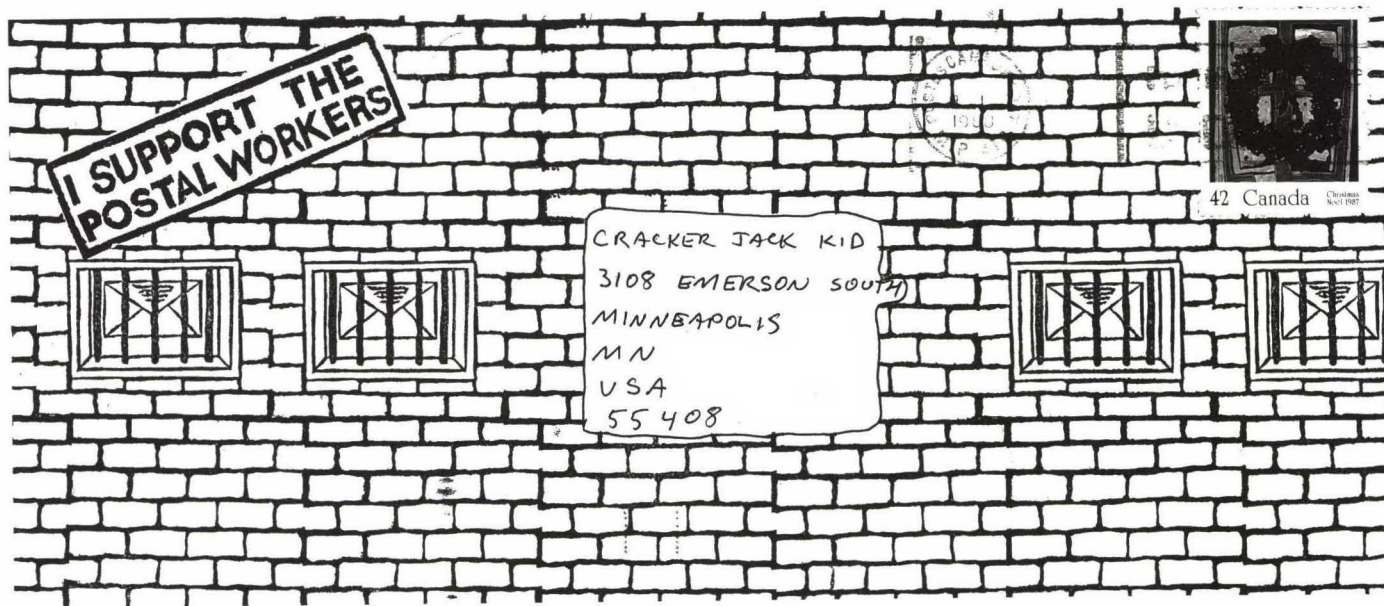 I SUPPORT THE
POSTAL WORKERS
42 Canada
Christmas
Noël 1987
CRACKER JACK KID
3108 EMERSON SOUTH
MINNEAPOLIS
MN
USA
55408